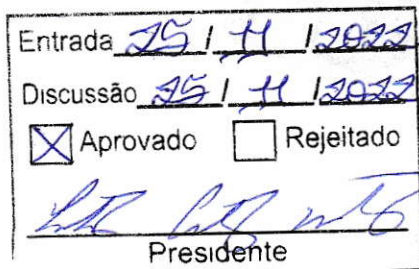 Entrada 25 / 11 / 2022
Discussão 25 / 11 / 2022
Aprovado Rejeitado
Presidente